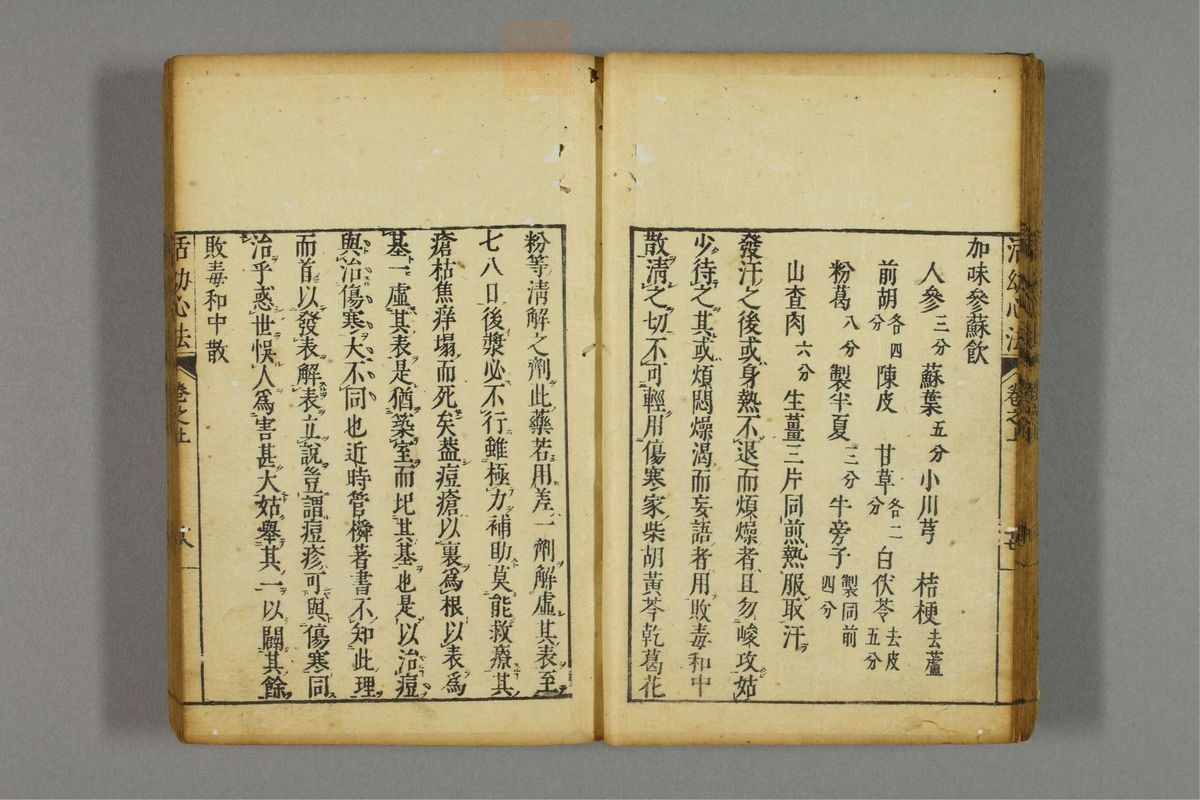 加味參蘇飲
人參三分 蘇葉五分 小川芎 桔梗去蘆
前胡各四分 陳皮 甘草各二分 白伏苓去皮五分
粉葛八分 製半夏三分 牛旁子製同前四分
山查肉六分 生薑三片同煎熱服取汗
發汗之後或身熱不退而煩燥者且勿峻攻姑
少待之其或煩悶燥渴而妄語者用敗毒和中
散清之切不可輕用傷寒家柴胡黃芩乾葛花
粉等淸解之劑此藥若用差一劑解虛其表至
七八日後漿必不行雖極力補助莫能救療其
瘡枯焦痒塌而死矣葢痘瘡以裏爲根以表爲
基一虛其表是猶築室而圯其基也是以治痘
與治傷寒大不同也近時管橓著書不知此理
而首以發表解表立說豈謂痘疹可與傷寒同
治乎惑世悞人爲害甚大姑舉其一以闢其餘
敗毒和中散
活幼心法 卷之上